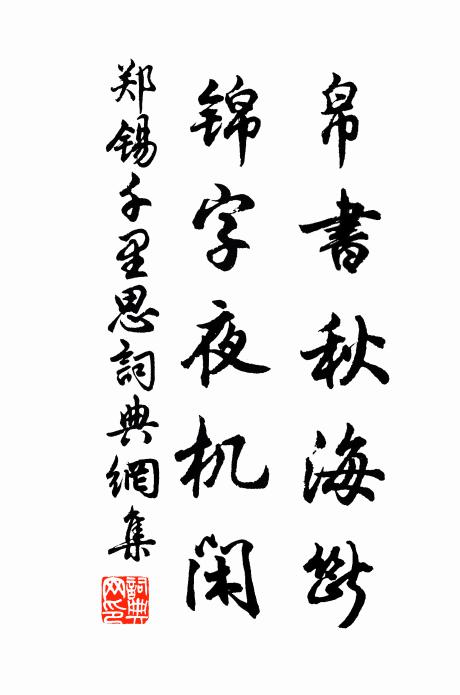 帛書秋海斷
錦字夜机闲
郑锡千里思詞典網集
詞典网印